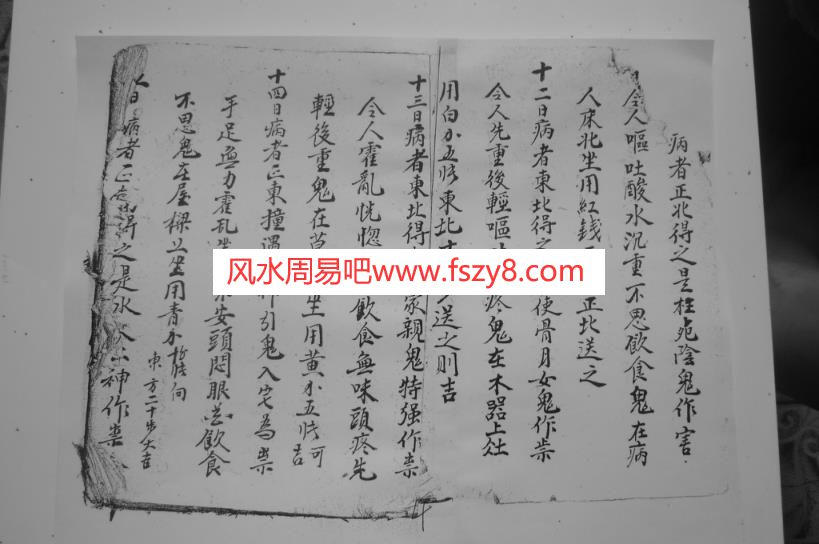 病者正北得之是柱死陰鬼作害
令人嘔吐酸水沉重不思飲食鬼在病
人床北坐用紅錢 正北送之
十二日病者東北得之 使骨月女鬼作祟
令人先重後輕嘔 疼鬼在木器上灶
用白 五 東北十 送之則吉
十三日病者東北得 家親鬼特强作祟
令人霍亂恍惚 飲食無味頭疼先
輕後重鬼在 坐用黄 五 可吉
十四日病者正東撞遇 神引鬼入宅為祟
手足無力霍乱 安頭悶眼 飲食
不思鬼在屋樑上坐用青 向
東方二十步大吉
日病者正 得之是水 神作祟
风水周易吧www.fszy8.com